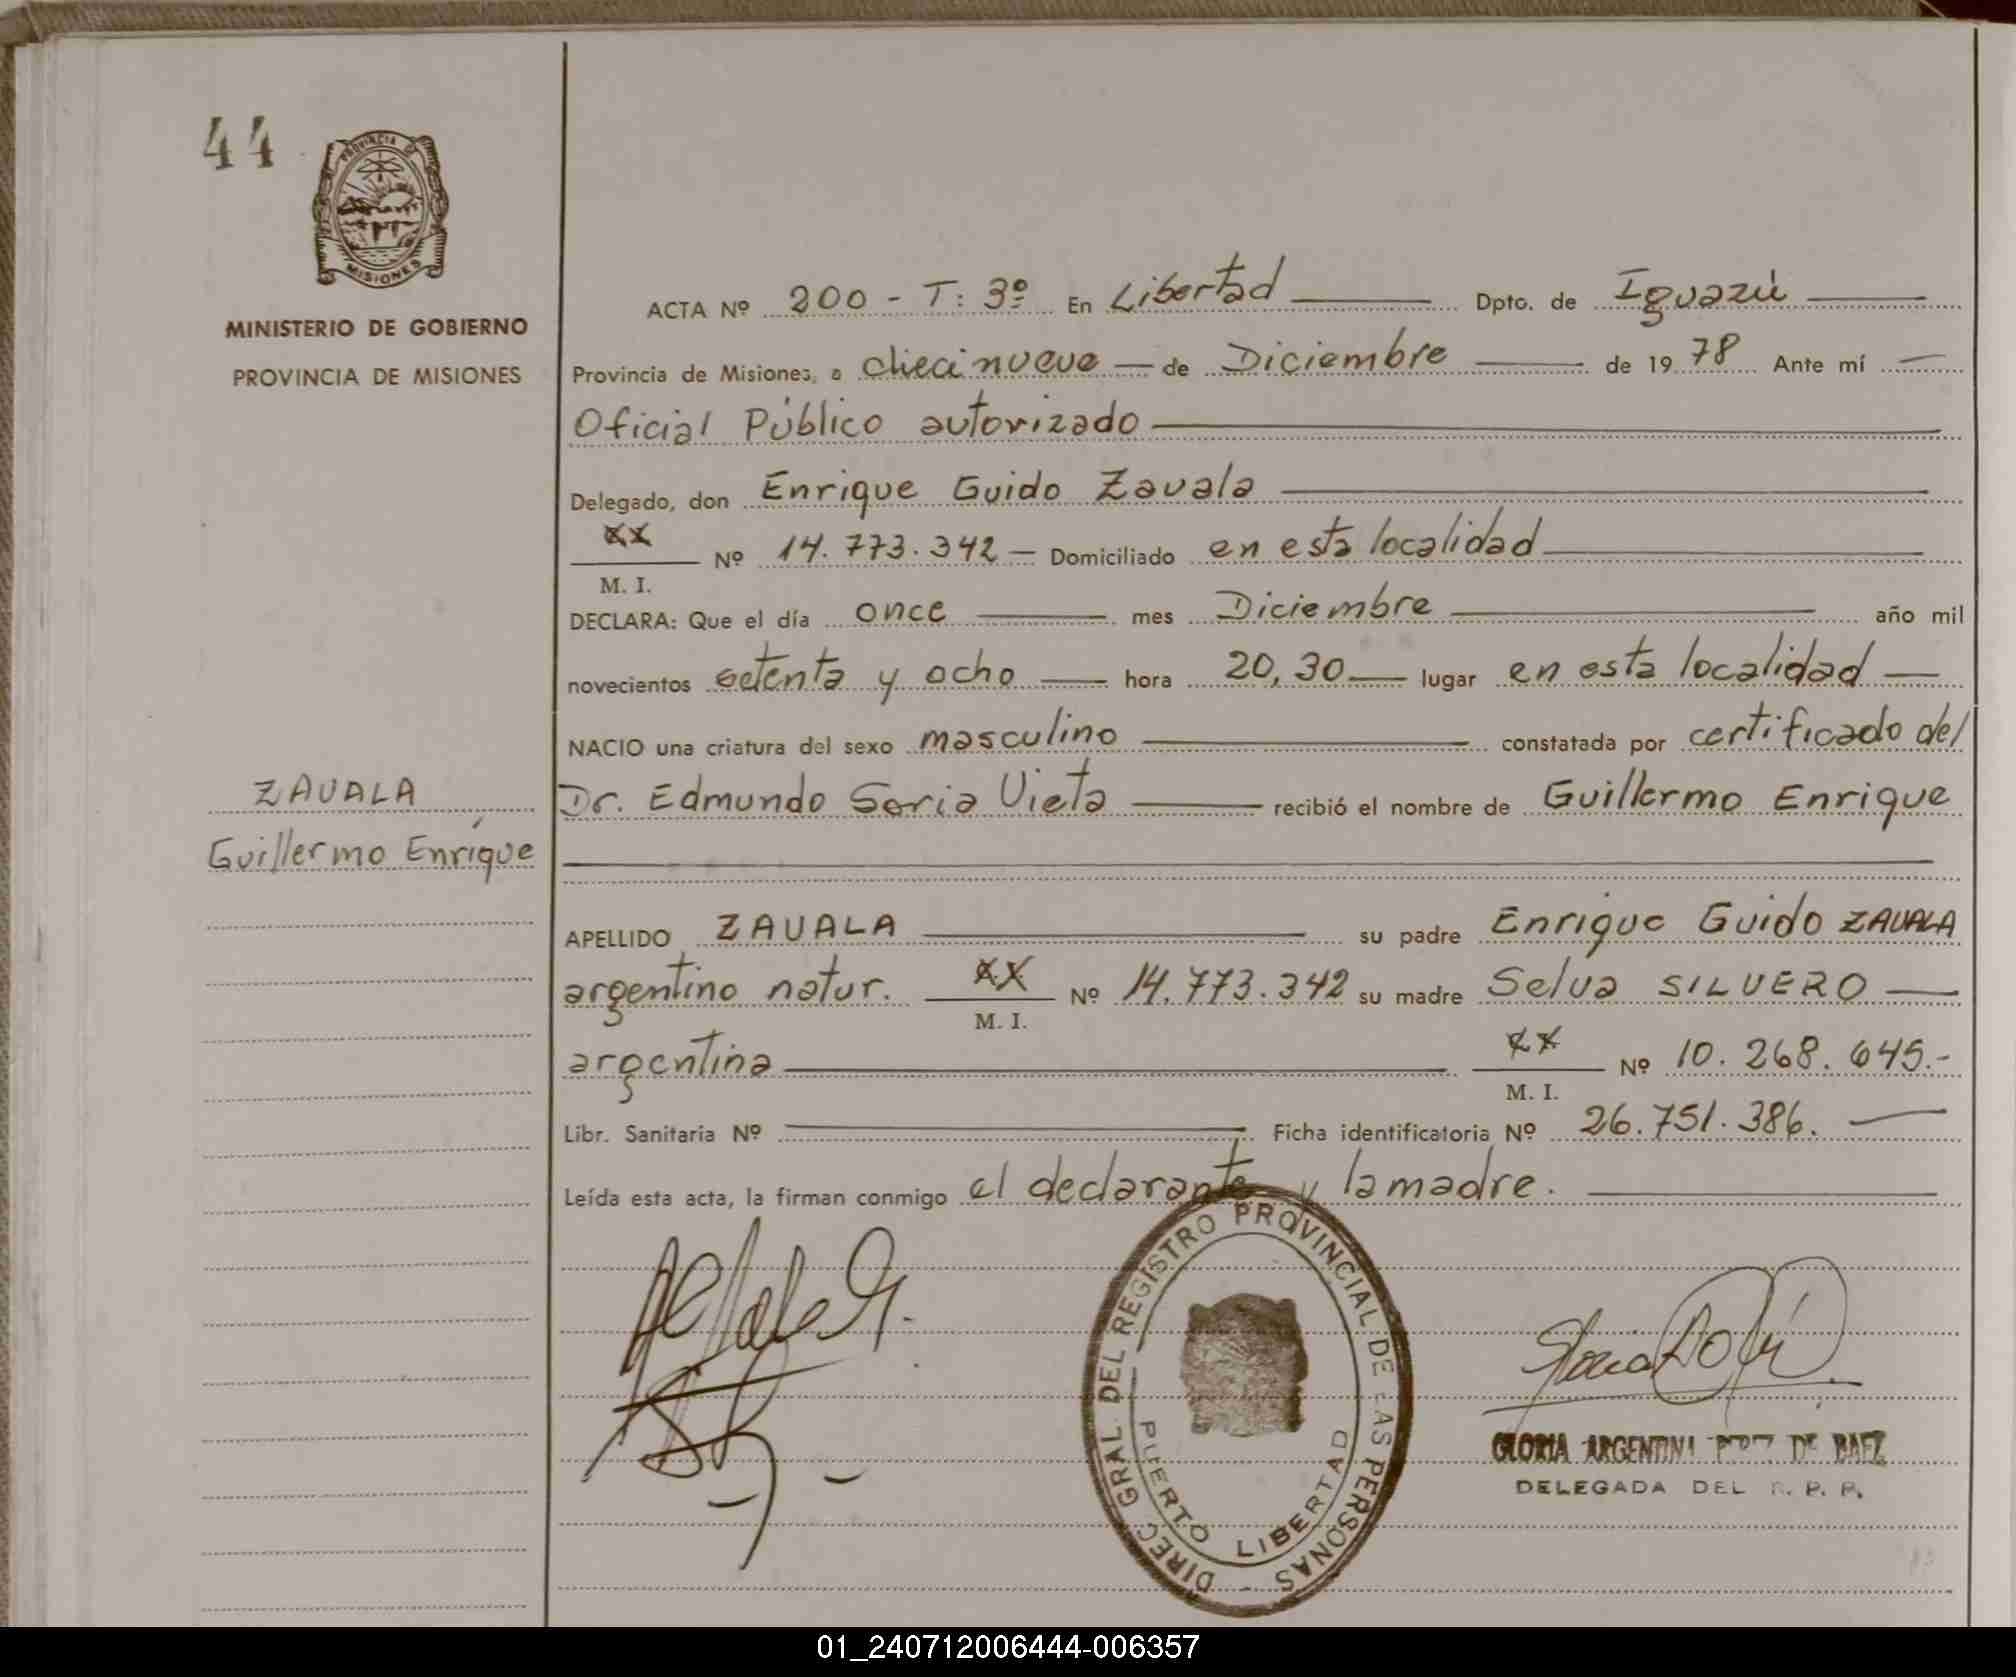 44
PROVINCIA DE
MISIONES
MINISTERIO DE GOBIERNO
PROVINCIA DE MISIONES
ZAVALA
Guillermo Enrique
ACTA Nº 200 - T: 3º En Libertad Dpto. de Iguazú
Provincia de Misiones, a diecinueve de Diciembre de 1978 Ante mí
Oficial Público autorizado
Delegado, don Enrique Guido Zavala
xx
M. I. Nº 14.773.342 Domiciliado en esta localidad
DECLARA: Que el día once mes Diciembre año mil
novecientos setenta y ocho hora 20,30 lugar en esta localidad
NACIO una criatura del sexo masculino constatada por certificado del
Dr. Edmundo Soria Vieta recibió el nombre de Guillermo Enrique
APELLIDO ZAVALA su padre Enrique Guido ZAVALA
argentino natur. xx M. I. Nº 14.773.342 su madre Selva SILVERO
argentina xx M. I. Nº 10.268.645.-
Libr. Sanitaria Nº Ficha identificatoria Nº 26.751.386.
Leída esta acta, la firman conmigo el declarante y la madre.
DIREC GRAL DEL REGISTRO PROVINCIAL DE LAS PERSONAS -
PUERTO LIBERTAD
GLORIA ARGENTINA PEREZ DE BAEZ
DELEGADA DEL R. P. P.
01_240712006444-006357